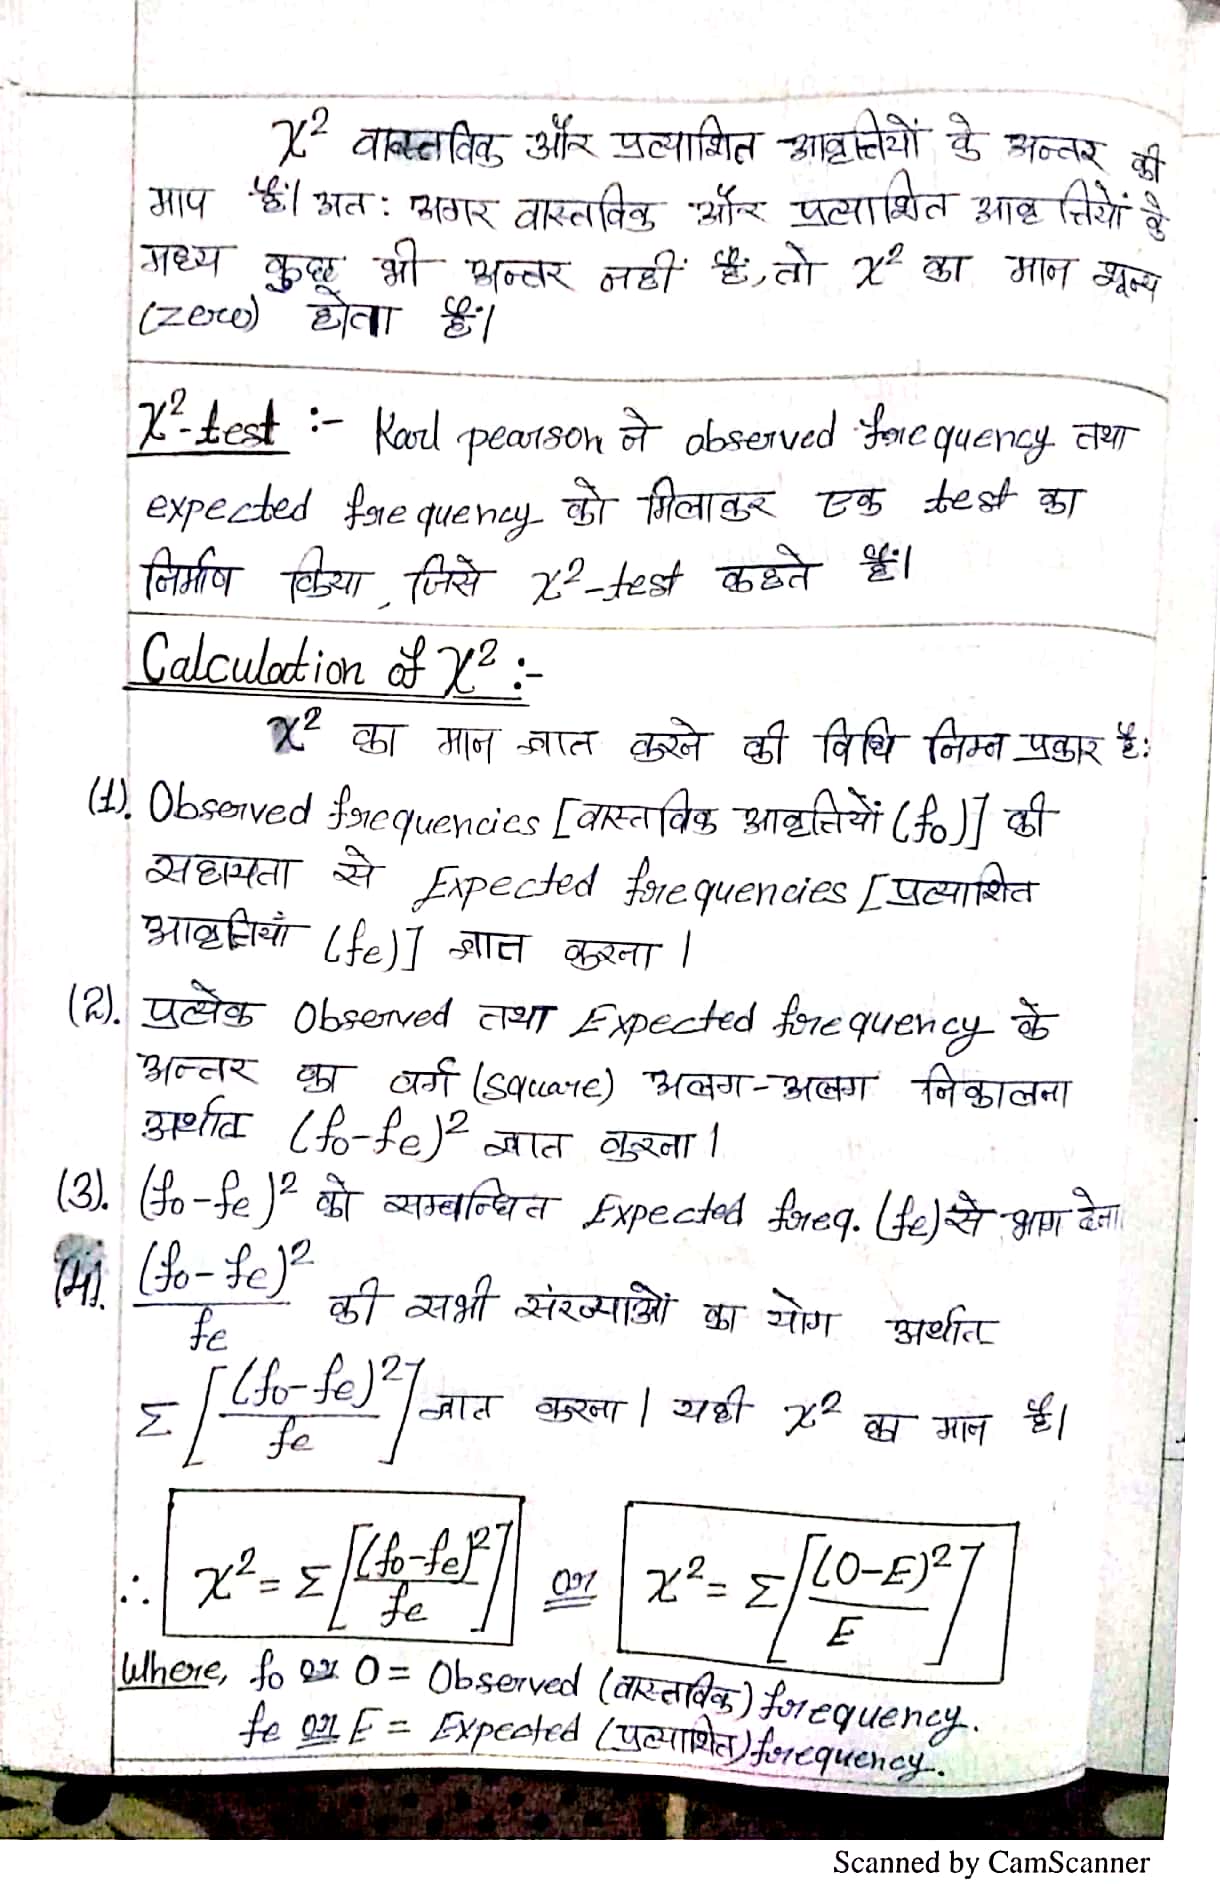 χ² वास्तविक और प्रत्याशित आवृत्तियों के अन्तर की
माप हैं। अतः अगर वास्तविक और प्रत्याशित आवृत्तियों के
मध्य कुछ भी अन्तर नहीं हैं, तो χ² का मान शून्य
(zero) होता हैं।
χ²-test :- Karl pearson ने observed frequency तथा
expected frequency को मिलाकर एक test का
निर्माण किया, जिसे χ²-test कहते हैं।
Calculation of χ² :-
χ² का मान ज्ञात करने की विधि निम्न प्रकार है:
(1). Observed frequencies [वास्तविक आवृत्तियों (fo)] की
सहायता से Expected frequencies [प्रत्याशित
आवृत्तियाँ (fe)] ज्ञात करना।
(2). प्रत्येक Observed तथा Expected frequency के
अन्तर का वर्ग (square) अलग-अलग निकालना
अर्थात (fo-fe)² ज्ञात करना।
(3). (fo-fe)² को सम्बन्धित Expected freq. (fe) से भाग देना
(4). (fo-fe)²/fe की सभी संख्याओं का योग अर्थात
Σ[(fo-fe)²/fe] ज्ञात करना। यही χ² का मान हैं।
∴ χ² = Σ[(fo-fe)²/fe] or χ² = Σ[(O-E)²/E]
Where, fo or O = Observed (वास्तविक) frequency.
fe or E = Expected (प्रत्याशित) frequency.
Scanned by CamScanner